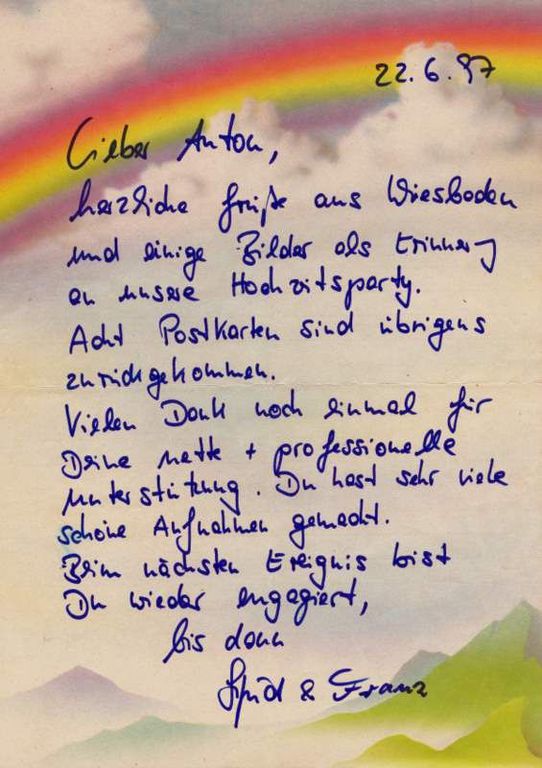 22.6.97
Lieber Anton,
herzliche Grüße aus Wiesbaden
und einige Bilder als Erinnerung
an unsere Hochzeitsparty.
Acht Postkarten sind übrigens
zurückgekommen.
Vielen Dank noch einmal für
Deine nette + professionelle
Unterstützung. Du hast sehr viele
schöne Aufnahmen gemacht.
Beim nächsten Ereignis bist
Du wieder engagiert,
bis dann
& Franz